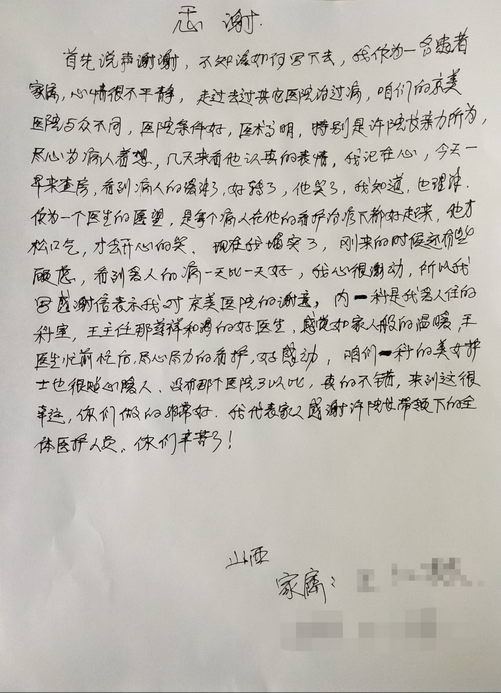 感谢
首先说声谢谢，不知该如何写下去，我作为一名患者
家属，心情很不平静，走过去过其它医院治过病，咱们的京美
医院与众不同，医院条件好，医术高明，特别是许院长亲力所为，
尽心为病人着想，几天来看他认真的表情，我记在心，今天一
早来查房，看到病人的，好转了，他笑了，我知道，也理解.
做为一个医生的愿望，是每个病人在他的看护治病下都好起来，他才
松口气，才会开心的笑、现在我踏实了，刚来的时候还有些
顾虑，看到家人的病一天比一天好，我心很激动，所以我
写感谢信表示我对京美医院的谢意，内一科是我家人住的
科室，王主任那慈祥和蔼的好医生，感觉如家人般的温暖，王
医生忙前忙后，尽心尽力的看护，好感动，咱们一科的美女护
士也很贴心暖人、没有那个医院可以比，真的不错，来到这很
幸运，你们做的非常好．我代表家人感谢许院长带领下的全
体医护人员、你们辛苦了！
山西
家属：